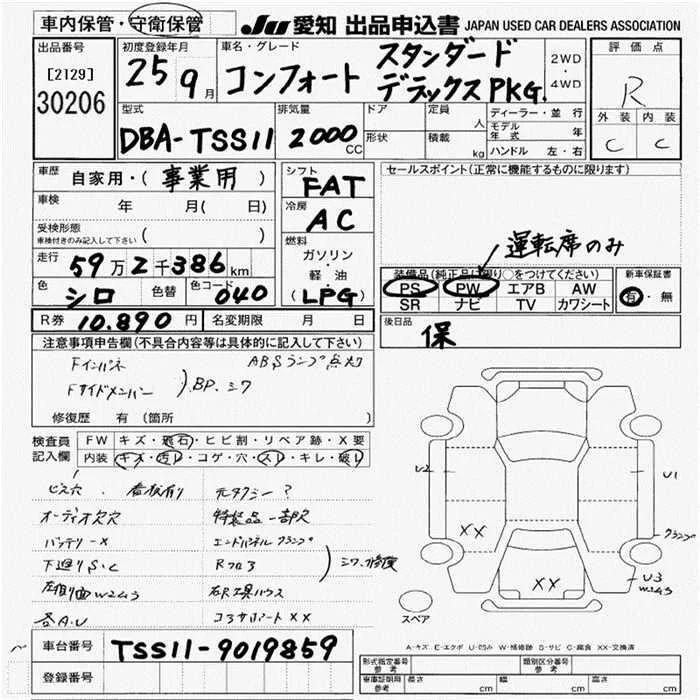 車内保管・守衛保管
JU 愛知 出品申込書 JAPAN USED CAR DEALERS ASSOCIATION
出品番号
[2129]
30206
初度登録年月
25 9月
車名・グレード
コンフォート スタンダード
デラックスPKG.
2WD
・
4WD
評価点
R
外装 内装
C C
型式
DBA-TSS11
排気量
2000 CC
ドア
形状
定員 人
積載 kg
ディーラー・並行
モデル年式 年
ハンドル 左・右
車歴 自家用・( 事業用 )
車検 年 月( 日)
受検形態
車検付きのみ記入して下さい ( )
走行 59万2千386km
色 シロ 色替 色コード 040
シフト
FAT
冷房
AC
燃料
ガソリン
・
軽油
(LPG)
R券 10.890円 名変期限 月 日
セールスポイント(正常に機能するものに限ります)
運転席のみ
装備品(純正品に限り○をつけてください)
PS PW エアB AW
SR ナビ TV カワシート
新車保証書
有・無
後日品
保
注意事項申告欄(不具合内容等は具体的に記入して下さい)
Fインパネ ABSランプ点灯
Fサイドメンバー ) BP. シワ
修復歴 有 (箇所 )
検査員
記入欄
FW キズ・飛石・ヒビ割・リペア跡・X要
内装 キズ・汚レ・コゲ・穴・スレ・キレ・破レ
ビス穴、看板有り 元タクシー?
オーディオ欠穴 特装品一部欠
バッテリーX エンドパネル クランプ
下廻りS、C Rフロア ) シワ、修復
各A.U コアサポートXX
U2
U1
XX
クランプ
XX
U3
W2ヶ3
スペア
A-キズ E-エクボ U-凹み W-補修跡 S-サビ C-腐食 XX-交換済
車台番号 TSS11-9019859
登録番号
形式指定番号
参考
類別区分番号
参考
車庫証明用
参考
長さ cm 幅 cm 高さ cm